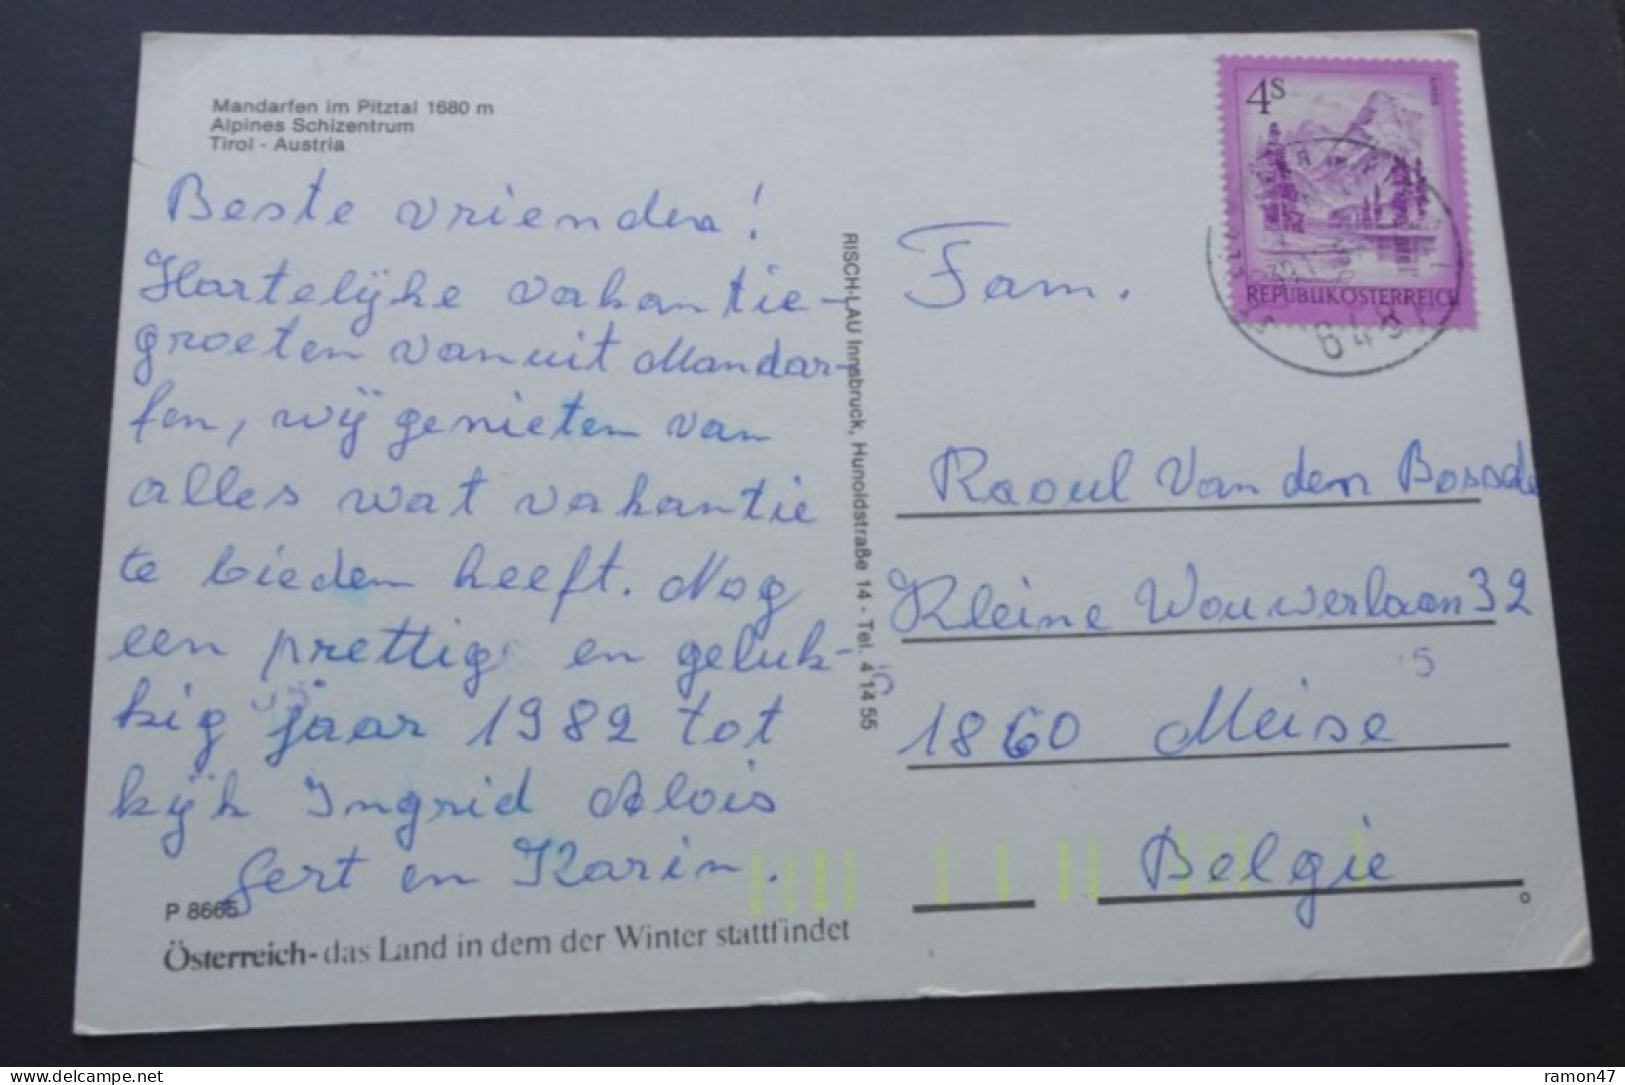 Mandarfen im Pitztal 1680 m
Alpines Schizentrum
Tirol - Austria
Beste vrienden!
Hartelijke vakantie-
groeten vanuit Mandar-
fen, wij genieten van
alles wat vakantie
te bieden heeft. Nog
een prettig en geluk-
kig jaar 1982 tot
kijk Ingrid Alois
Gert en Karin.
P 8665
Österreich- das Land in dem der Winter stattfindet
RISCH-LAU Innsbruck, Hunoldstraße 14 - Tel. 4 14 55
4S
REPUBLIK ÖSTERREICH
Fam.
Raoul Van den Bossche
Kleine Wouwerlaan 32
5
1860 Meise
België
delcampe.net
ramon47